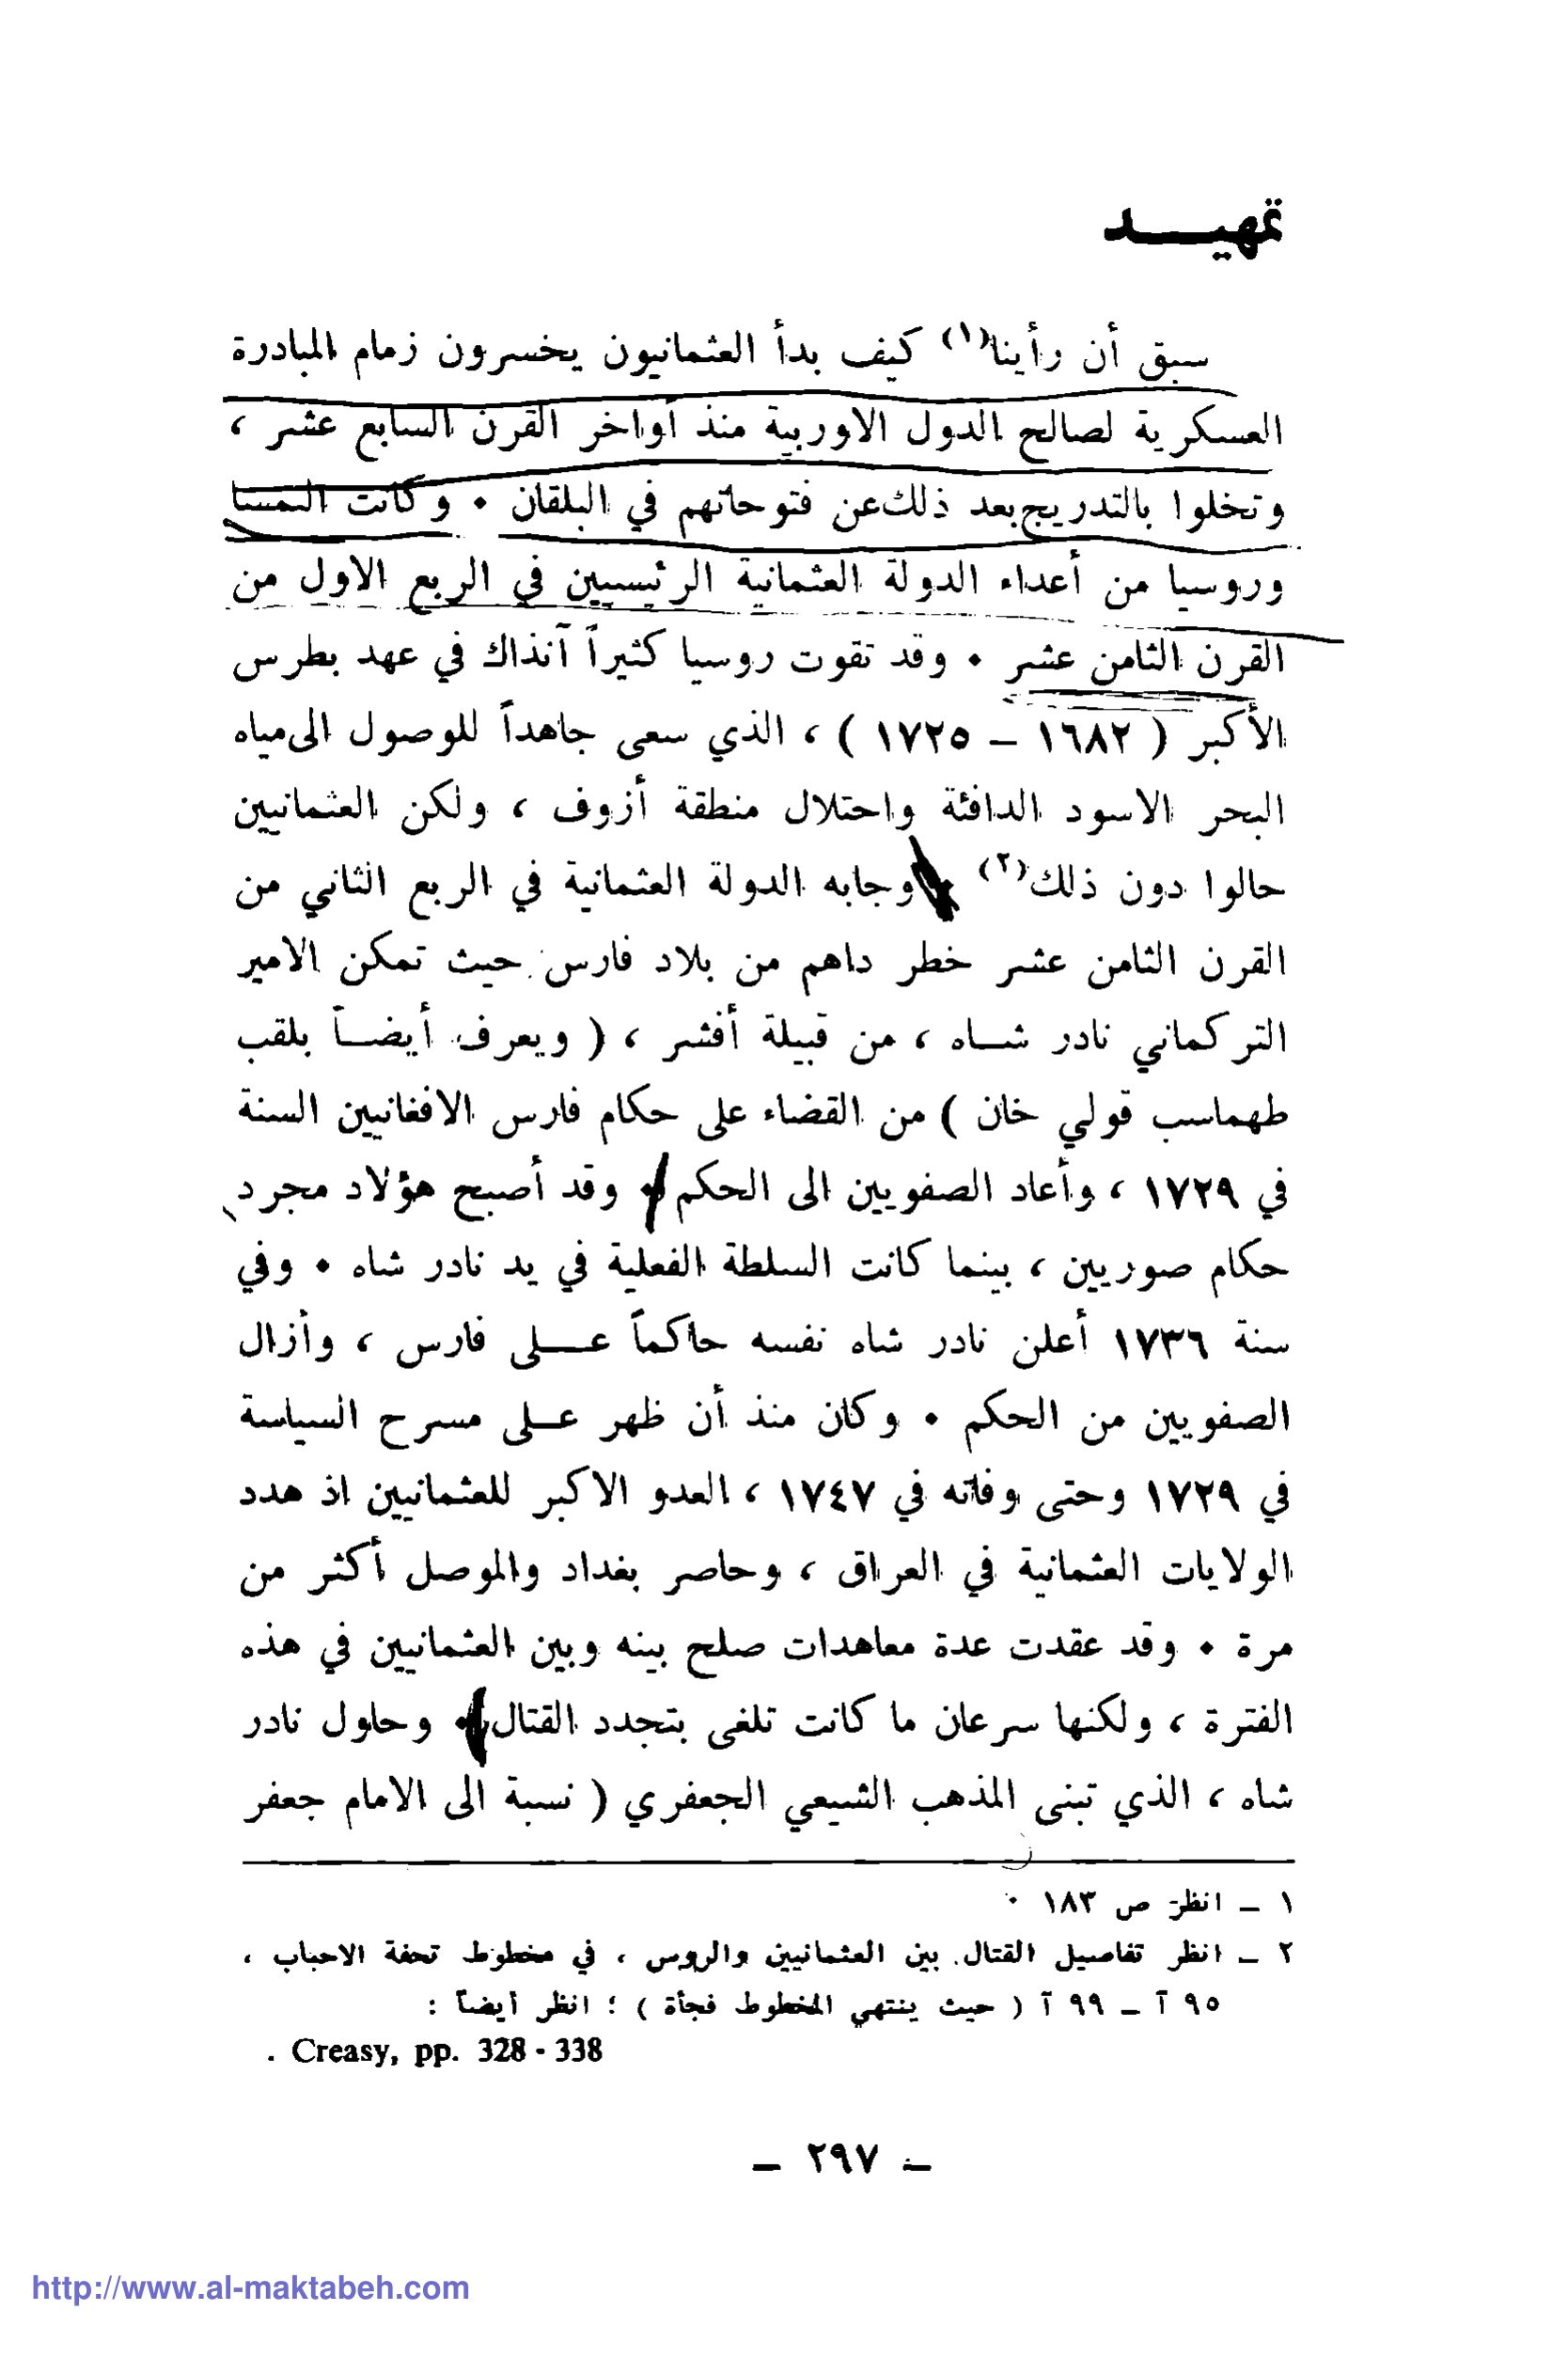 تمهيــــد
سبق أن رأينا(١) كيف بدأ العثمانيون يخسرون زمام المبادرة
العسكرية لصالح الدول الاوربية منذ أواخر القرن السابع عشر ،
وتخلوا بالتدريج بعد ذلك عن فتوحاتهم في البلقان ٠ وكانت النمسا
وروسيا من أعداء الدولة العثمانية الرئيسيين في الربع الاول من
القرن الثامن عشر ٠ وقد تقوت روسيا كثيراً آنذاك في عهد بطرس
الأكبر ( ١٦٨٢ – ١٧٢٥ ) ، الذي سعى جاهداً للوصول الى مياه
البحر الاسود الدافئة واحتلال منطقة أزوف ، ولكن العثمانيين
حالوا دون ذلك(٢) ٠ وجابه الدولة العثمانية في الربع الثاني من
القرن الثامن عشر خطر داهم من بلاد فارس حيث تمكن الامير
التركماني نادر شــاه ، من قبيلة أفشر ، ( ويعرف أيضــاً بلقب
طهماسب قولي خان ) من القضاء على حكام فارس الافغانيين السنة
في ١٧٢٩ ، وأعاد الصفويين الى الحكم ٠ وقد أصبح هؤلاد مجرد
حكام صوريين ، بينما كانت السلطة الفعلية في يد نادر شاه ٠ وفي
سنة ١٧٣٦ أعلن نادر شاه نفسه حاكماً عــــلى فارس ، وأزال
الصفويين من الحكم ٠ وكان منذ أن ظهر عــلى مسرح السياسة
في ١٧٢٩ وحتى وفاته في ١٧٤٧ ، العدو الاكبر للعثمانيين اذ هدد
الولايات العثمانية في العراق ، وحاصر بغداد والموصل أكثر من
مرة ٠ وقد عقدت عدة معاهدات صلح بينه وبين العثمانيين في هذه
الفترة ، ولكنها سرعان ما كانت تلغى بتجدد القتال ٠ وحاول نادر
شاه ، الذي تبنى المذهب الشيعي الجعفري ( نسبة الى الامام جعفر
١ – انظر ص ١٨٣ ٠
٢ – انظر تفاصيل القتال بين العثمانيين والروس ، في مخطوط تحفة الاحباب ،
٩٥ آ – ٩٩ آ ( حيث ينتهي المخطوط فجأة ) ؛ انظر أيضاً :
. Creasy, pp. 328 - 338
– ٢٩٧ –
http://www.al-maktabeh.com